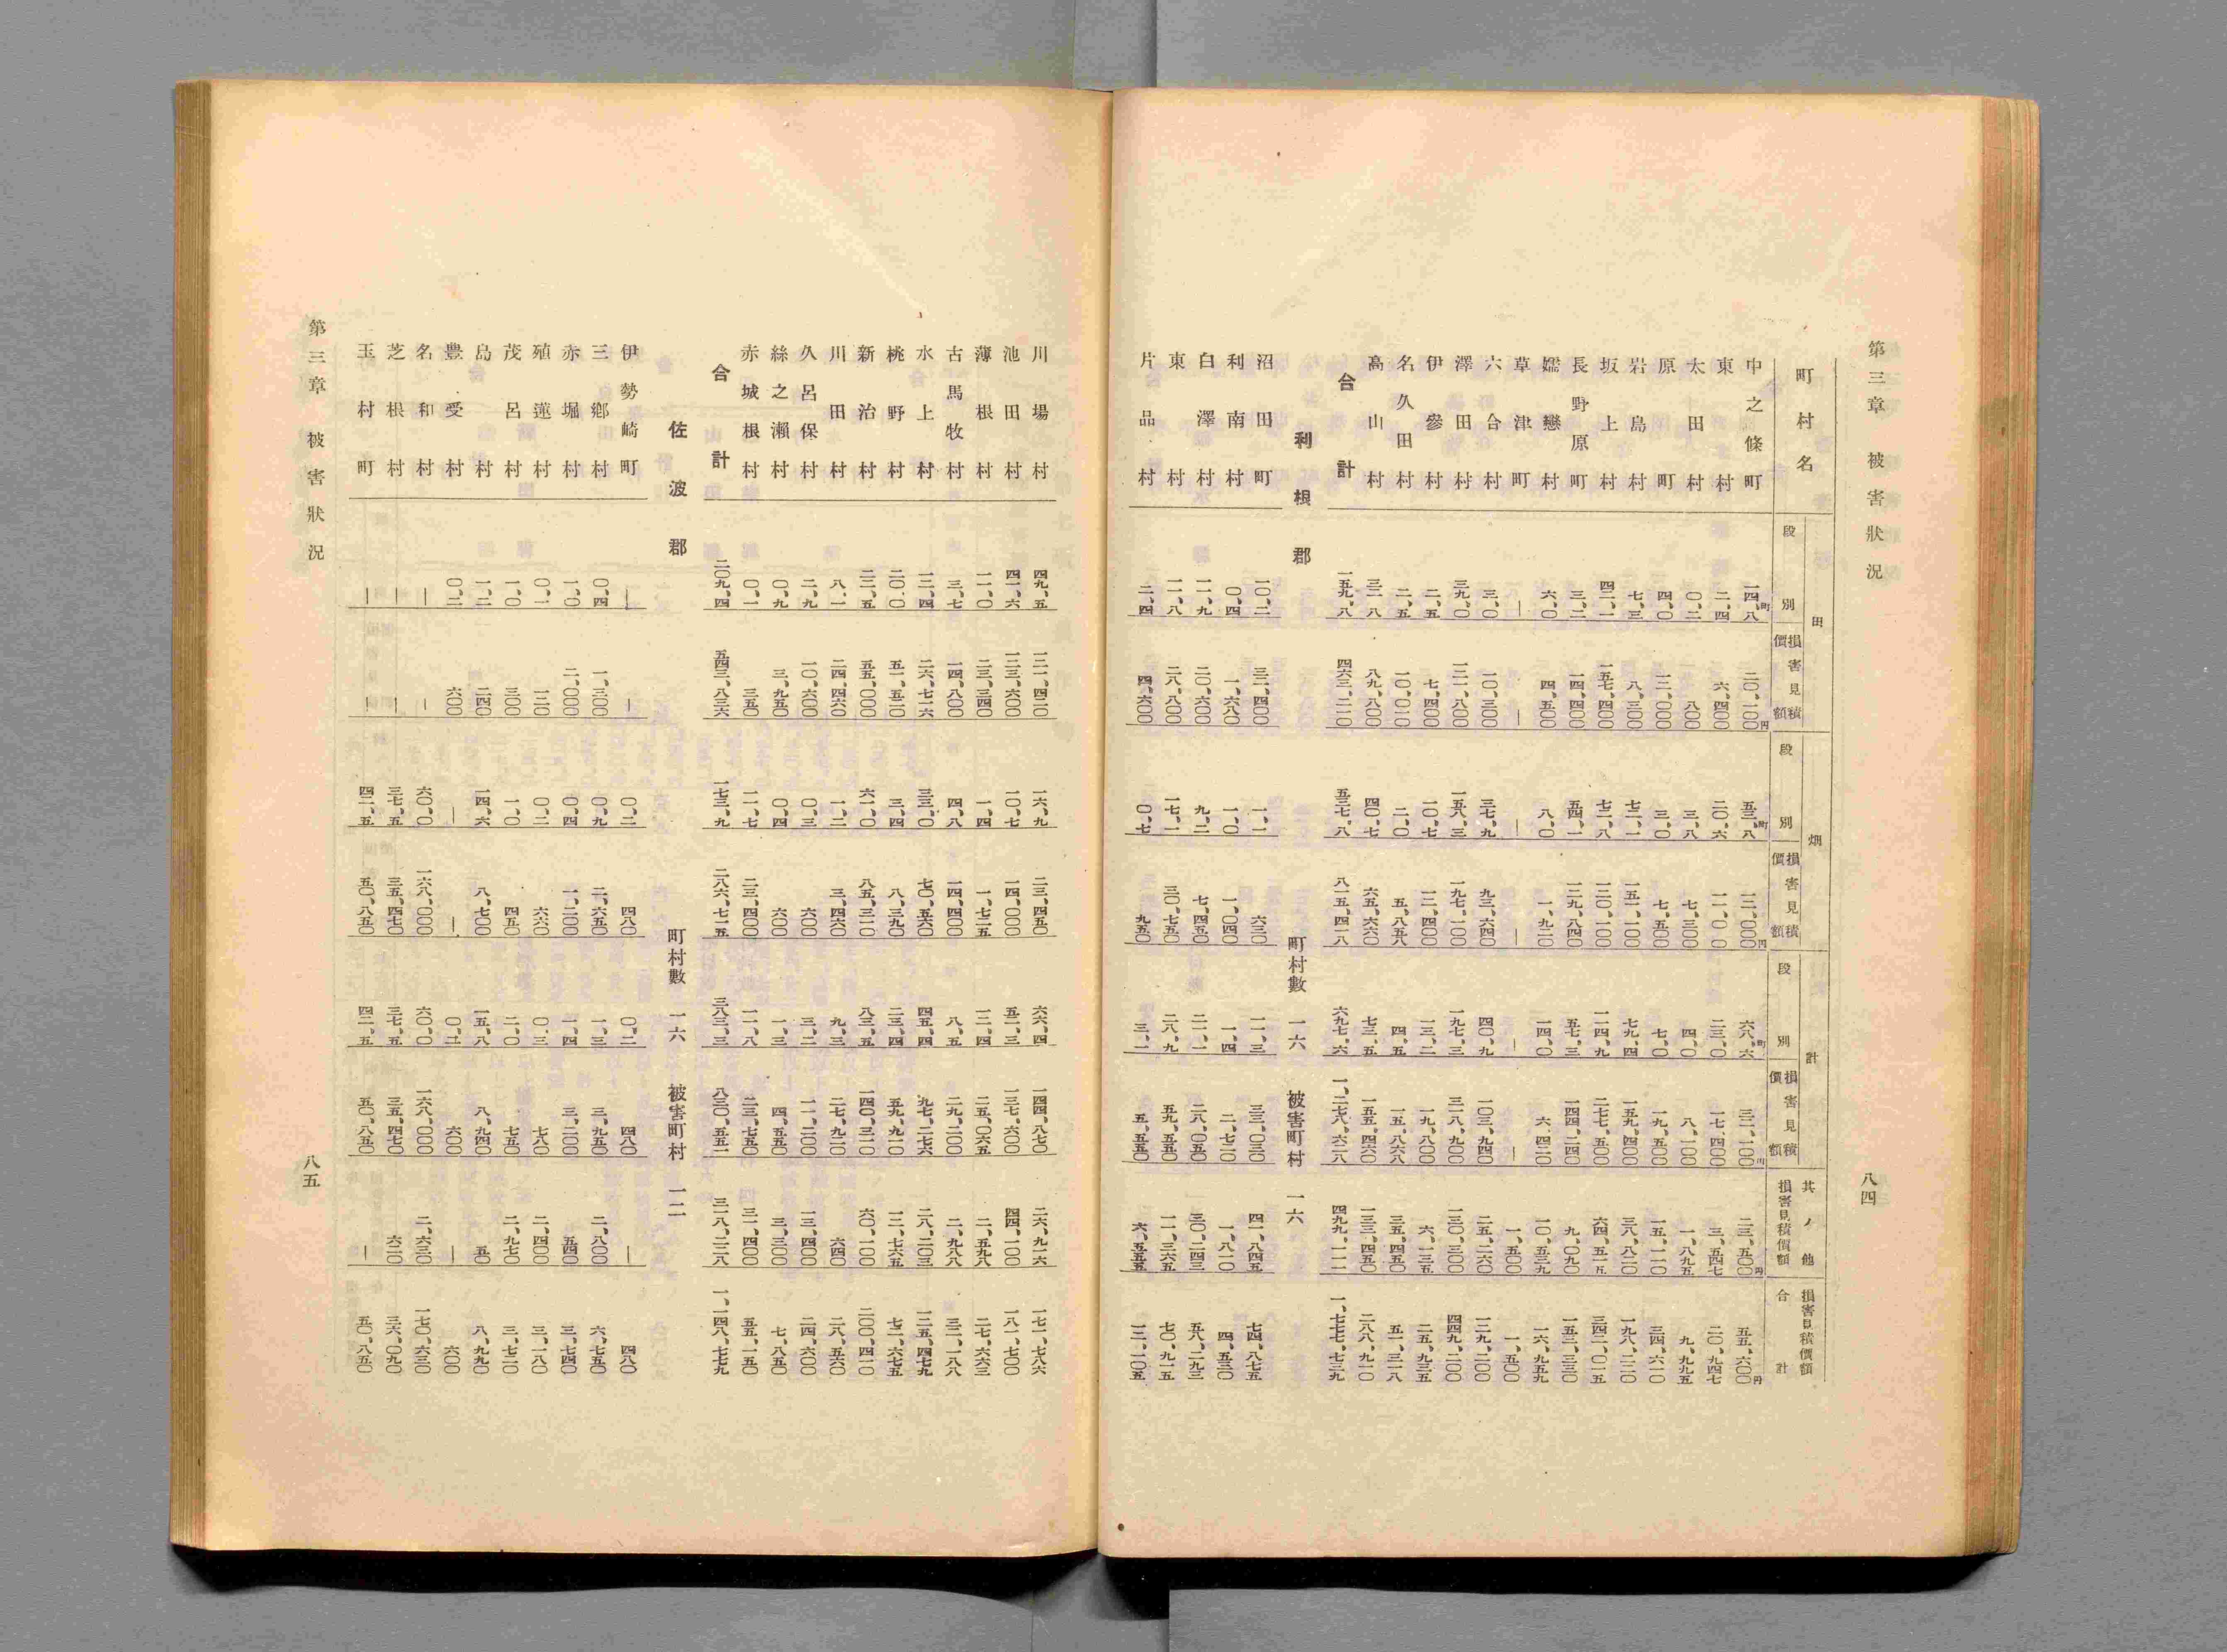 第三章 被害狀況 八四
町村名 田 段別 損害見積價額 畑 段別 損害見積價額 計 段別 損害見積價額 其ノ他損害見積價額 損害見積價額合計
中之條町 一四、八町 二〇、一〇〇円 五三、八町 一二、〇〇〇円 六八、六町 三二、一〇〇円 二三、五〇〇円 五五、六〇〇円
東村 二、四 六、四〇〇 二〇、六 一一、〇〇 二三、〇 一七、四〇〇 三、五四七 二〇、九四七
太田村 〇、二 八〇〇 三、八 七、三〇〇 四、〇 八、一〇〇 一、八九五 九、九九五
原町 四、〇 一二、〇〇〇 三、〇 七、五〇〇 七、〇 一九、五〇〇 一五、一一〇 三四、六一〇
岩島村 七、三 八、三〇〇 七二、一 一五一、一〇〇 七九、四 一五九、四〇〇 三八、八二〇 一九八、二二〇
坂上村 四二、一 一五七、四〇〇 七二、八 一二〇、一〇〇 一一四、九 二七七、五〇〇 六四、五一五 三四二、〇一五
長野原町 三、二 一四、四〇〇 五四、一 一二九、八四〇 五七、三 一四四、二四〇 九、〇九〇 一五三、三三〇
嬬戀村 六、〇 四、五〇〇 八、〇 一、九二〇 一四、〇 六、四二〇 一〇、五三九 一六、九五九
草津町 — — — — — — 一、五〇〇 一、五〇〇
六合村 三、〇 一〇、三〇〇 三七、九 九三、六四〇 四〇、九 一〇三、九四〇 二五、二六〇 一二九、二〇〇
澤田村 三九、〇 一二一、八〇〇 一五八、三 一九七、一〇〇 一九七、三 三一八、九〇〇 一三〇、三〇〇 四四九、二〇〇
伊參村 二、五 七、四〇〇 一〇、七 一二、四〇〇 一三、二 一九、八〇〇 六、一三五 二五、九三五
名久田村 二、五 一〇、〇一〇 二、〇 五、八五八 四、五 一五、八六八 三五、四五〇 五一、三一八
高山村 三二、八 八九、八〇〇 四〇、七 六五、六六〇 七三、五 一五五、四六〇 一三三、四五〇 二八八、九一〇
合計 一五九、八 四六三、二一〇 五三七、八 八一五、四一八 六九七、六 一、二七八、六二八 四九九、一一一 一、七七七、七三九
利根郡 町村數 一六 被害町村 一六
沼田町 一〇、二 三二、四〇〇 一、一 六三〇 一一、三 三三、〇三〇 四一、八四五 七四、八七五
利南村 〇、四 一、六八〇 一、〇 一、〇四〇 一、四 二、七二〇 一、八一〇 四、五三〇
白澤村 一一、九 二〇、六〇〇 九、二 七、四五〇 二一、一 二八、〇五〇 三〇、二四三 五八、二九三
東村 一一、八 二八、八〇〇 一七、一 三〇、七五〇 二八、九 五九、五五〇 一一、三六五 七〇、九一五
片品村 二、四 四、六〇〇 〇、七 九五〇 三、一 五、五五〇 六、五五五 一二、一〇五
川場村 四九、五 一二一、四二〇 一六、九 二三、四五〇 六六、四 一四四、八七〇 二六、九一六 一七一、七八六
池田村 四一、六 一二三、六〇〇 一〇、七 一四、〇〇〇 五二、三 一三七、六〇〇 四四、一〇〇 一八一、七〇〇
薄根村 一一、〇 二三、三四〇 一、四 一、七二五 一二、四 二五、〇六五 二、五九八 二七、六六三
古馬牧村 三、七 一四、八〇〇 四、八 一四、四〇〇 八、五 二九、二〇〇 二、九八八 三二、一八八
水上村 一二、四 二六、七一六 三三、〇 七〇、五六〇 四五、四 九七、二七六 二八、二〇三 一二五、四七九
桃野村 二〇、〇 五一、五二〇 三、四 八、三九〇 二三、四 五九、九一〇 一二、七六五 七二、六七五
新治村 二二、五 五五、〇〇〇 六一、〇 八五、三一〇 八三、五 一四〇、三一〇 六〇、一〇〇 二〇〇、四一〇
川田村 八、一 二四、四六〇 一、二 三、四六〇 九、三 二七、九二〇 六四〇 二八、五六〇
久呂保村 二、九 一〇、六〇〇 〇、三 六〇〇 三、二 一一、二〇〇 一三、四〇〇 二四、六〇〇
絲之瀨村 〇、九 三、九五〇 〇、四 六〇〇 一、三 四、五五〇 三、三〇〇 七、八五〇
赤城根村 〇、一 三五〇 一一、七 二三、四〇〇 一一、八 二三、七五〇 三一、四〇〇 五五、一五〇
合計 二〇九、四 五四三、八三六 一七三、九 二八六、七一五 三八三、三 八三〇、五五一 三一八、二二八 一、一四八、七七九
佐波郡 町村數 一六 被害町村 一二
伊勢崎町 — — 〇、二 四八〇 〇、二 四八〇 — 四八〇
三鄉村 〇、四 一、三〇〇 〇、九 二、六五〇 一、三 三、九五〇 二、八〇〇 六、七五〇
赤堀村 一、〇 二、〇〇〇 〇、四 一、二〇〇 一、四 三、二〇〇 五四〇 三、七四〇
殖蓮村 〇、一 一二〇 〇、二 六六〇 〇、三 七八〇 二、四〇〇 三、一八〇
茂呂村 一、〇 三〇〇 一、〇 四五〇 二、〇 七五〇 二、九七〇 三、七二〇
島村 一、二 二四〇 一四、六 八、七〇〇 一五、八 八、九四〇 五〇 八、九九〇
豐受村 〇、二 六〇〇 — — 〇、二 六〇〇 — 六〇〇
名和村 — — 六〇、〇 一六八、〇〇〇 六〇、〇 一六八、〇〇〇 二、六三〇 一七〇、六三〇
芝根村 — — 三七、五 三五、四七〇 三七、五 三五、四七〇 六二〇 三六、〇九〇
玉村町 — — 四二、五 五〇、八五〇 四二、五 五〇、八五〇 — 五〇、八五〇
第三章 被害狀況 八五